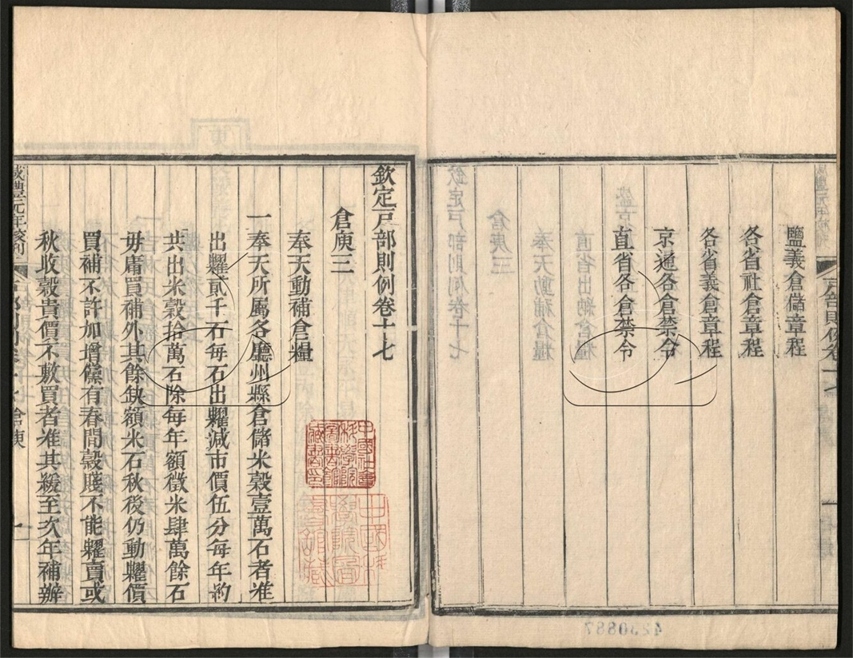 鹽義倉儲章程
各省社倉章程
各省義倉章程
京通各倉禁令
直省各倉禁令
欽定戸部則例卷十七
倉庾三
奉天動補倉糧
一奉天所屬各廳州縣倉儲米穀壹萬石者准
出糶貳千石每石出糶減市價伍分每年約
共出米穀拾萬石除每年額徵米肆萬餘石
毋庸買補外其餘缺額米石秋後仍動糶價
買補不許加增儻有春間穀賤不能糶賣或
秋收穀貴價不敷買者准其緩至次年補辦
咸豐元年校刊
4230887